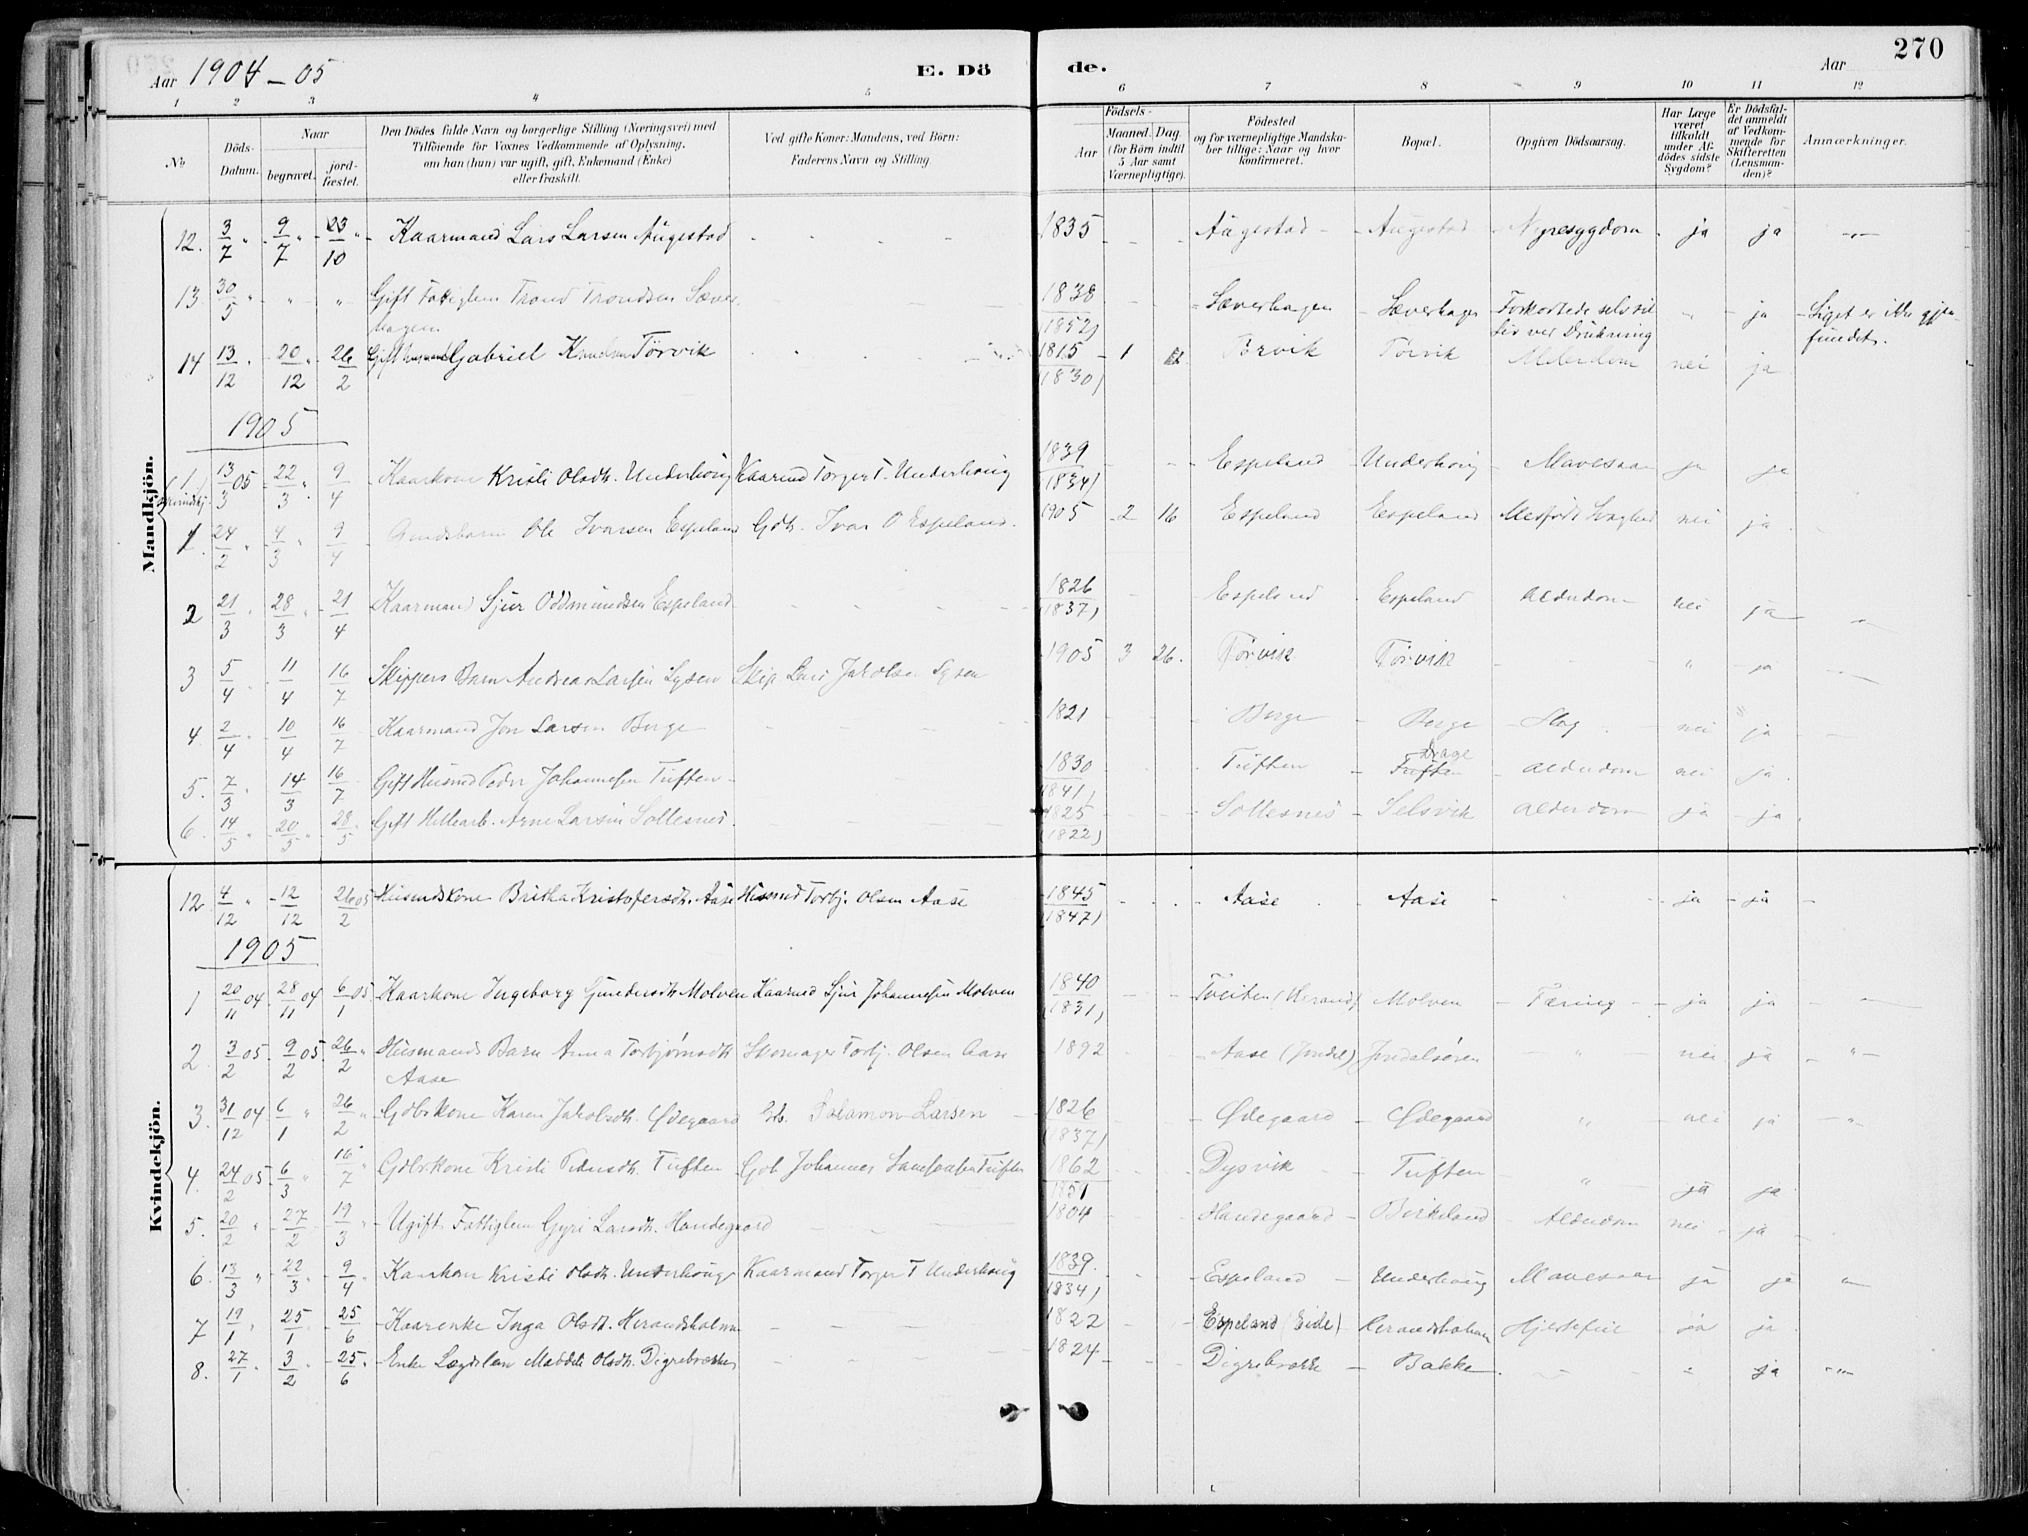 Aar 1904-05 E. Dö de. Aar 270
1 2 3 4 5 6 7 8 9 10 11 12
No
Döds-Datum.
Naar
begravet.
jord-fæstet.
Den Dödes fulde Navn og borgerlige Stilling (Næringsvei) med
Tilföiende for Voxnes Vedkommende af Oplysning,
om han (hun) var ugift, gift, Enkemand (Enke)
eller fraskilt.
Ved gifte Koner: Mandens, ved Börn:
Faderens Navn og Stilling.
Födsels-
Aar
Maaned. Dag.
(for Börn indtil
5 Aar samt
Værnepligtige).
Födested
og for værnepligtige Mandska-
ber tillige: Naar og hvor
konfirmeret.
Bopæl.
Opgiven Dödsaarsag.
Har Læge
været
tilkaldt
under Af-
dödes sidste
Sygdom?
Er Dödsfal-
det anmeldt
af Vedkom-
mende for
Skifteretten
(Lensman-
den)?
Anmærkninger.
Mandkjön.
12. 3/7 " 9/7 " 23/10 " Kaarmand Lars Larsen Augestad 1835 Augestad Augestad Nyresygdom ja ja
13. 30/5 " " " Gift Fattiglem Trond Trondsen Sæver-
hagen 1838 (1852) Sæverhagen Sæverhagen Forkortede selv sit
Liv ved Drukning " ja Liget er ikke gjen-
fundet.
14 13/12 " 20/12 " 26/2 Gabriel Knudsen Tørvik 1815 (1830) 1 Tørvik Tørvik Alderdom nei ja
1905
1 Kvindekj. 13/3 05 22/3 " 9/4 Kaarkone Kristi Olsdt. Underhoug Kaarmd Torger T. Underhoug 1839 (1834) Espeland Underhoug Mavesaar ja ja
1. 24/2 " 4/3 " 9/4 Ole Ivarsen Espeland Gdb. Ivar O Espeland. 1905 2 16 Espeland Espeland Medfødt Svaghed nei ja
2 21/3 " 28/3 21/4 Kaarmand Sjur Oddmundsen Espeland 1826 (1837) Espeland Espeland Alderdom nei ja
3 5/4 11/4 16/7 Skippers Barn Andreas Larsen Lysen Skip Lars Jakobsen Lysen 1905 3 26. Tørvik Tørvik " ja
4. 2/4 " 10/4 16/7 Kaarmand Jon Larsen Berge 1821 Berge Berge Slag nei ja
5. 7/3 " 14/3 16/7 Gift Husmd Peder Johannesen Tuften 1830 (1841) Tuften Tuften Drage Alderdom nei ja
6. 14/5 " 20/5 " 28/5 Gift Arne Larsen Sollesnes 1825 (1822) Sollesnes Selsvik Alderdom ja ja
Kvindekjön.
12 4/12 " 12/12 26/2 05 Husmdskone Britha Kristofersdt. Aase Husmd Torbj. Olsen Aase 1845 (1847) Aase Aase ja ja
1905
1 20/11 04 28/11 04 6/1 05 Kaarkone Ingeborg Gundersdt Molven Kaarmd Sjur Johannesen Molven 1840 (1831) Tveiten (Herand) Molven Tæring ja ja
2 3/2 05 9/2 05 26/2 " Husmands Barn Anna Torbjørnsdt
Aase Skomager Torbj. Olsen Aase 1892 Aase (Jondal) Jondalsøren " nei ja "
3. 31/12 04 6/1 " 26/2 " Gdbrkone Karen Jakobsdt. Ødegaard Gb. Salamon Larsen 1826 (1837) Ødegaard Ødegaard " nei ja "
4. 24/2 05 6/3 " 16/7 " Gdbrkone Kristi Pedersdt. Tuften Gbr Johannes Tuften 1862 1859 Dysvik Tuften " ja ja
5. 20/2 " 27/2 19/3 " Ugift Fattiglem Gyri Larsdt. Handegaard 1804 Handegaard Birkeland Alderdom nei ja
6. 13/3 " 22/3 " 9/4 " Kaarkone Kristi Olsdt. Underhoug Kaarmand Torger T Underhoug 1839. (1834) Espeland Underhoug Mavesaar ja ja "
7 19/1 " 25/1 25/6 Kaarenke Inga Olsdt. Herandsholmen 1822 Espeland (Eide) Herandsholmen Hjertefeil ja ja
8. 27/1 " 3/2 " 25/6 Enke Lægdslem Olsdt. Digrebrække 1824 Digrebrække Bakke " ja